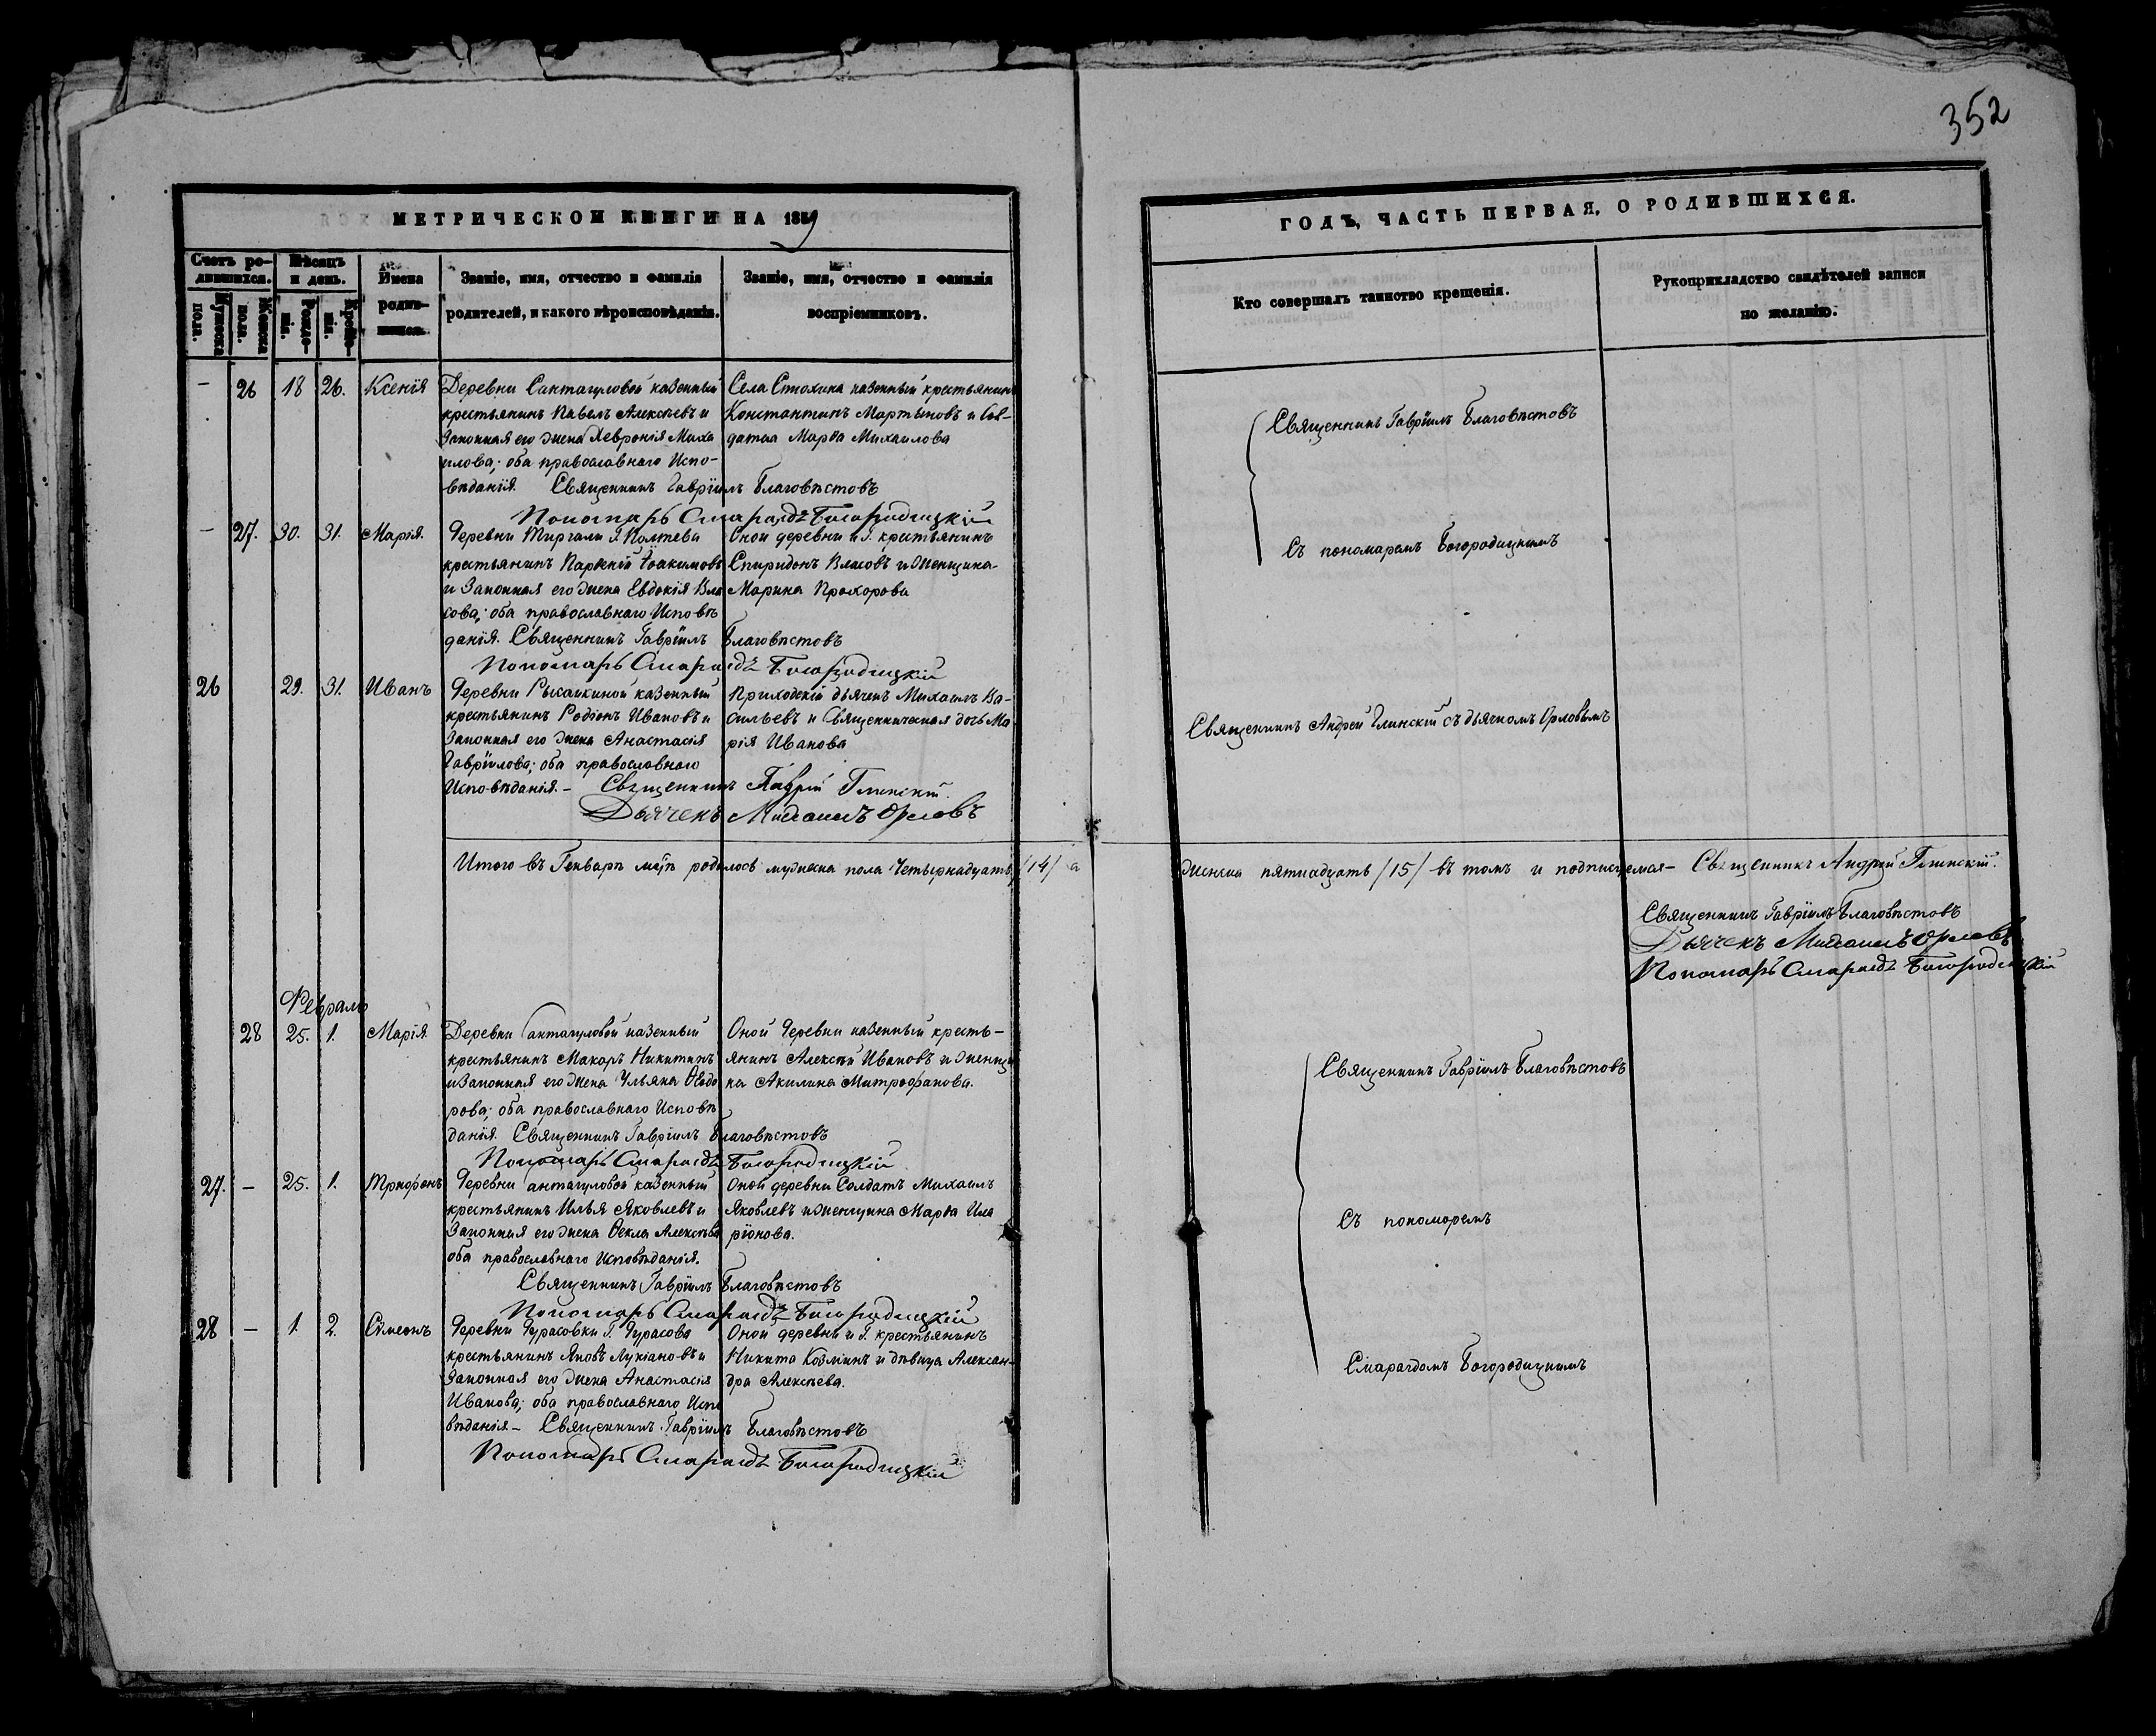 352
МЕТРИЧЕСКОЙ КНИГИ НА 1859
ГОДЪ, ЧАСТЬ ПЕРВАЯ, О РОДИВШИХСЯ.
Счетъ ро-
дившихся.
Мужеска
пола.
Женска
пола.
Мѣсяцъ
и день.
Рожде-
нія.
Креще-
нія.
Имена
родив-
шихся.
Званіе, имя, отчество и фамилія
родителей, и какого вѣроисповѣданія.
Званіе, имя, отчество и фамилія
воспріемниковъ.
Кто совершалъ таинство крещенія.
Рукоприкладство свидѣтелей записи
по желанію.
— 26 18 26. Ксенія
Деревни Сантагуловой казенный
крестьянинъ Павелъ Алексѣевъ и
Законная его жена Хевронія Миха
илова; оба православнаго Испо-
вѣданія. Священникъ Гавріилъ Благовѣстовъ
Пономарь Смарагдъ Богородицкій
Села Стюхина казенный крестьянинъ
Константинъ Мартыновъ и Сол-
датка Марѳа Михаилова
Священникъ Гавріилъ Благовѣстовъ
— 27. 30. 31. Марія.
Деревни Тиргали Г. Полтева
крестьянинъ Парѳеній Іоакимовъ
и Законная его жена Евдокія Вла
сова; оба православнаго Исповѣ
данія. Священникъ Гавріилъ Благовѣстовъ
Пономарь Смарагдъ Богородицкій
Оной деревни и Г. крестьянинъ
Спиридонъ Власовъ и женщина
Марина Прохорова
Съ пономаремъ Богородицкимъ
26 29. 31. Иванъ
Деревни Рысайкиной казенный
крестьянинъ Родіонъ Ивановъ и
Законная его жена Анастасія
Гавріилова; оба православнаго
Исповѣданія. — Священникъ Андрей Глинскій.
Дьячекъ Михаилъ Орловъ
Приходскій дьячекъ Михаилъ Ва-
сильевъ и Священническая дочь Ма
рія Иванова
Священникъ Андрей Глинскій съ дьячкомъ Орловымъ
Итого въ Генварѣ мцѣ родилось мужеска пола Четырнадцать /14/ а
женска пятнадцать /15/ въ томъ и подписуемся — Священникъ Андрей Глинскій.
Священникъ Гавріилъ Благовѣстовъ
Дьячекъ Михаилъ Орловъ
Пономарь Смарагдъ Богородицкій
Февраль
28 25. 1. Марія.
Деревни Сантагуловой казенный
крестьянинъ Макаръ Никитинъ
и Законная его жена Ульяна Ѳеодо
рова; оба православнаго Исповѣ
данія. Священникъ Гавріилъ Благовѣстовъ
Пономарь Смарагдъ Богородицкій
Оной Деревни казенный кресть-
янинъ Алексѣй Ивановъ и женщи
на Акилина Митрофанова.
Священникъ Гавріилъ Благовѣстовъ
27. — 25. 1. Трифонъ
Деревни Сантагуловой казенный
крестьянинъ Илья Яковлевъ и
Законная его жена Ѳекла Алексѣева
оба православнаго Исповѣданія.
Священникъ Гавріилъ Благовѣстовъ
Пономарь Смарагдъ Богородицкій
Оной деревни Солдатъ Михаилъ
Яковлевъ и женщина Марѳа Ила
ріонова.
Съ пономаремъ
28 — 1. 2. Симеонъ
Деревни Дурасовки Г. Дурасова
крестьянинъ Яковъ Лукіановъ и
Законная его жена Анастасія
Иванова; оба православнаго Испо
вѣданія — Священникъ Гавріилъ Благовѣстовъ
Пономарь Смарагдъ Богородицкій
Оной деревни и Г. крестьянинъ
Никита Козминъ и дѣвица Алексан-
дра Алексѣева.
Смарагдомъ Богородицкимъ